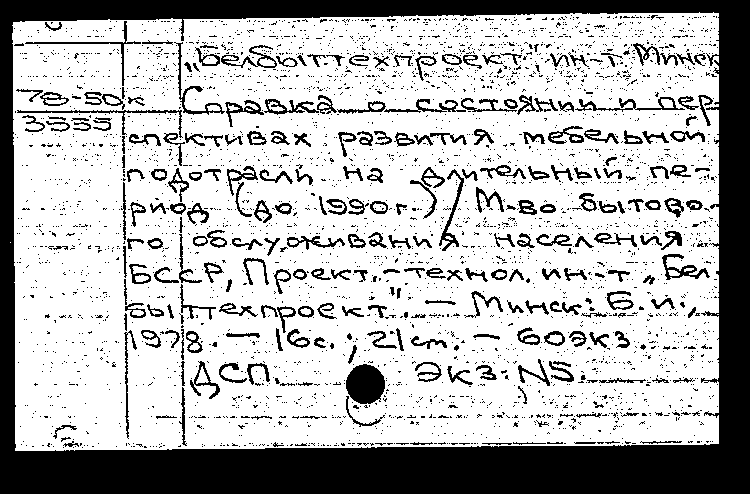 „Белбыттехпроект", ин-т. Минск
78-50к
3555
Справка о состоянии и пер-
спективах развития мебельной
подотрасли на длительный пе-
риод (до 1990 г.) / М-во бытово-
го обслуживания населения
БССР, Проект.-технол. ин-т „Бел-
быттехпроект". — Минск: Б. и.,
1978. — 16 с. ; 21 см. — 60 экз.
ДСП. Экз. N5.